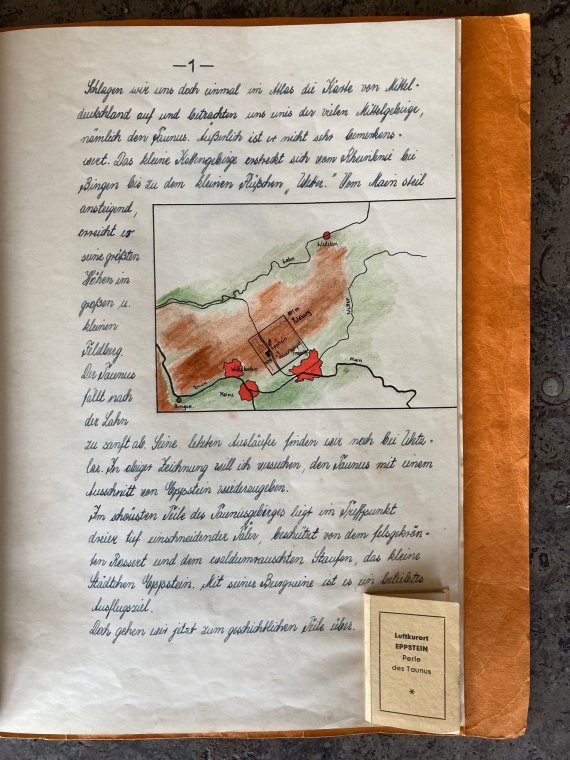 —1—
Schlagen wir uns doch einmal im Atlas die Karte von Mittel-
deutschland auf und betrachten uns eines der vielen Mittelgebirge,
nämlich den Taunus. Äußerlich ist er nicht sehr bemerkens-
wert. Das kleine Kettengebirge erstreckt sich vom Rheinknie bei
Bingen bis zu dem kleinen Flüßchen „Wetter." Vom Main steil
ansteigend,
erreicht er
seine größten
Höhen im
großen u.
kleinen
Feldberg.
Der Taunus
fällt nach
der Lahn
zu sanft ab. Seine letzten Ausläufer finden wir noch bei Wetz-
lar. In obiger Zeichnung will ich versuchen, den Taunus mit einem
Ausschnitt von Eppstein wiederzugeben.
Im schönsten Teile des Taunusgebirges liegt im Treffpunkt
dreier tief einschneidender Täler, beschützt von dem felsgekrön-
ten Rossert und dem waldumrauschten Staufen, das kleine
Städtchen Eppstein. Mit seiner Burgruine ist es ein beliebtes
Ausflugsziel.
Doch gehen wir jetzt zum geschichtlichen Teile über.
Wetzlar
Lahn
Wetter
Main
Rhein
Wiesbaden
Mainz
Bingen
Luftkurort
EPPSTEIN
Perle
des Taunus
*